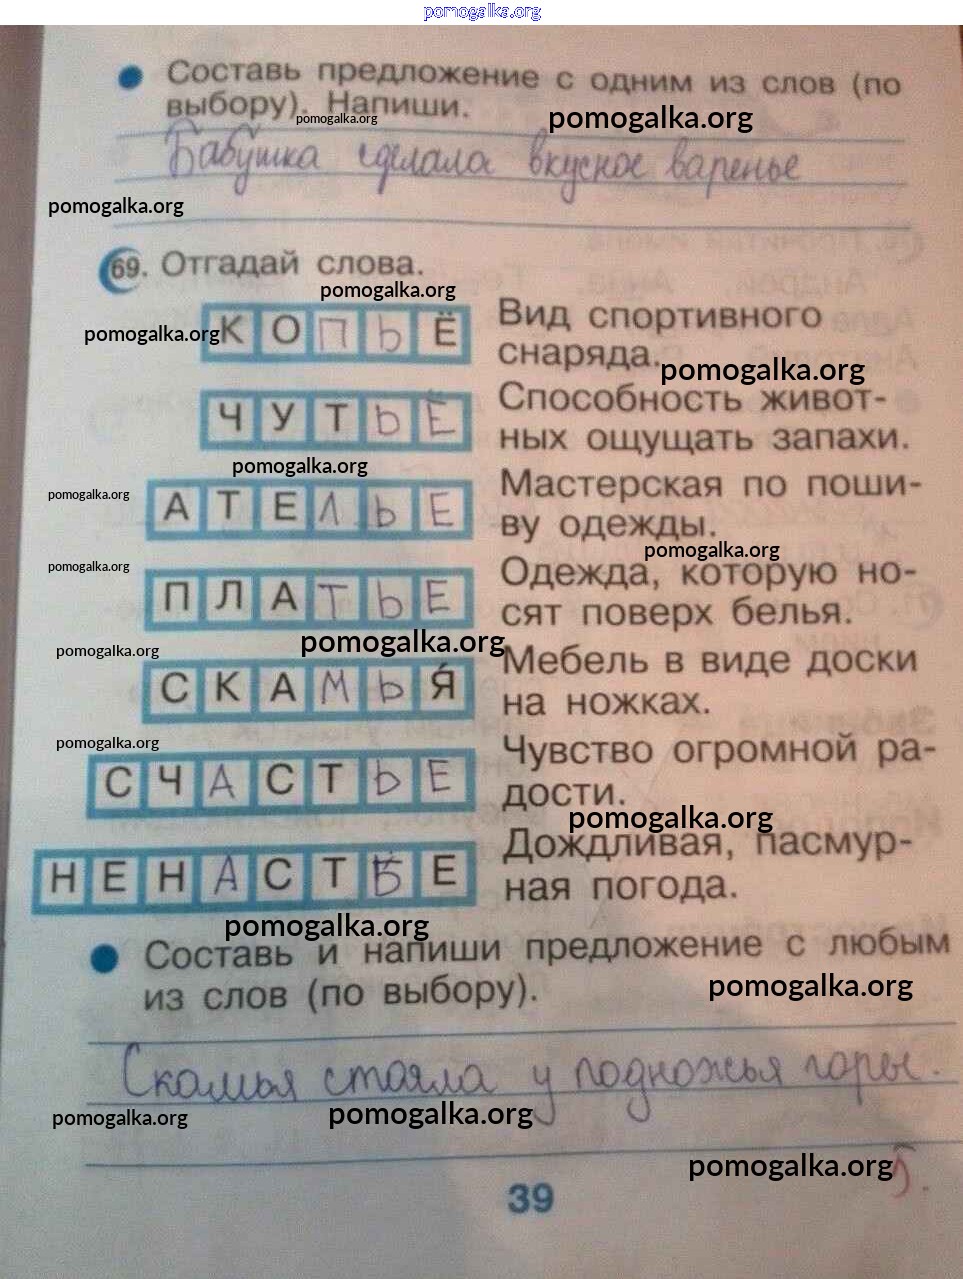 pomogalka.org
Составь предложение с одним из слов (по
выбору). Напиши.
pomogalka.org
pomogalka.org
Бабушка сделала вкусное варенье
pomogalka.org
69. Отгадай слова.
pomogalka.org
pomogalka.org
КОПЬЁ Вид спортивного
снаряда.
pomogalka.org
ЧУТЬЁ Способность живот-
ных ощущать запахи.
pomogalka.org
pomogalka.org
АТЕЛЬЕ Мастерская по поши-
ву одежды.
pomogalka.org
pomogalka.org
ПЛАТЬЕ Одежда, которую но-
сят поверх белья.
pomogalka.org
pomogalka.org
СКАМЬЯ́ Мебель в виде доски
на ножках.
pomogalka.org
СЧАСТЬЕ Чувство огромной ра-
дости.
pomogalka.org
НЕНАСТЬЕ Дождливая, пасмур-
ная погода.
pomogalka.org
Составь и напиши предложение с любым
из слов (по выбору).
pomogalka.org
Скамья стояла у подножья горы.
pomogalka.org
pomogalka.org
pomogalka.org
5.
39